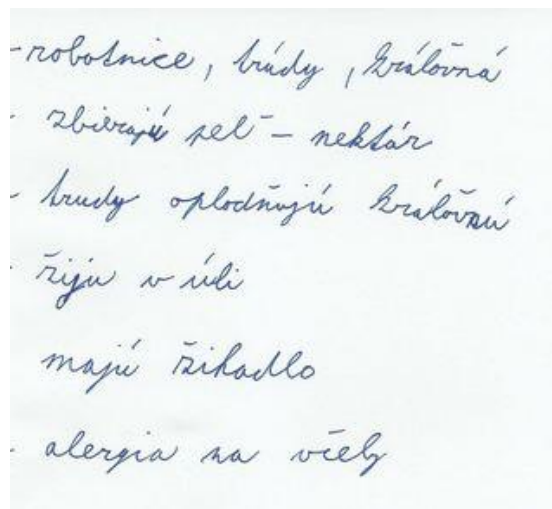 - robotnice, trúdy, kráľovná
- zbierajú peľ - nektár
- trudy oplodňujú kráľovnú
- žiju v úli
majú žihadlo
- alergia na včely